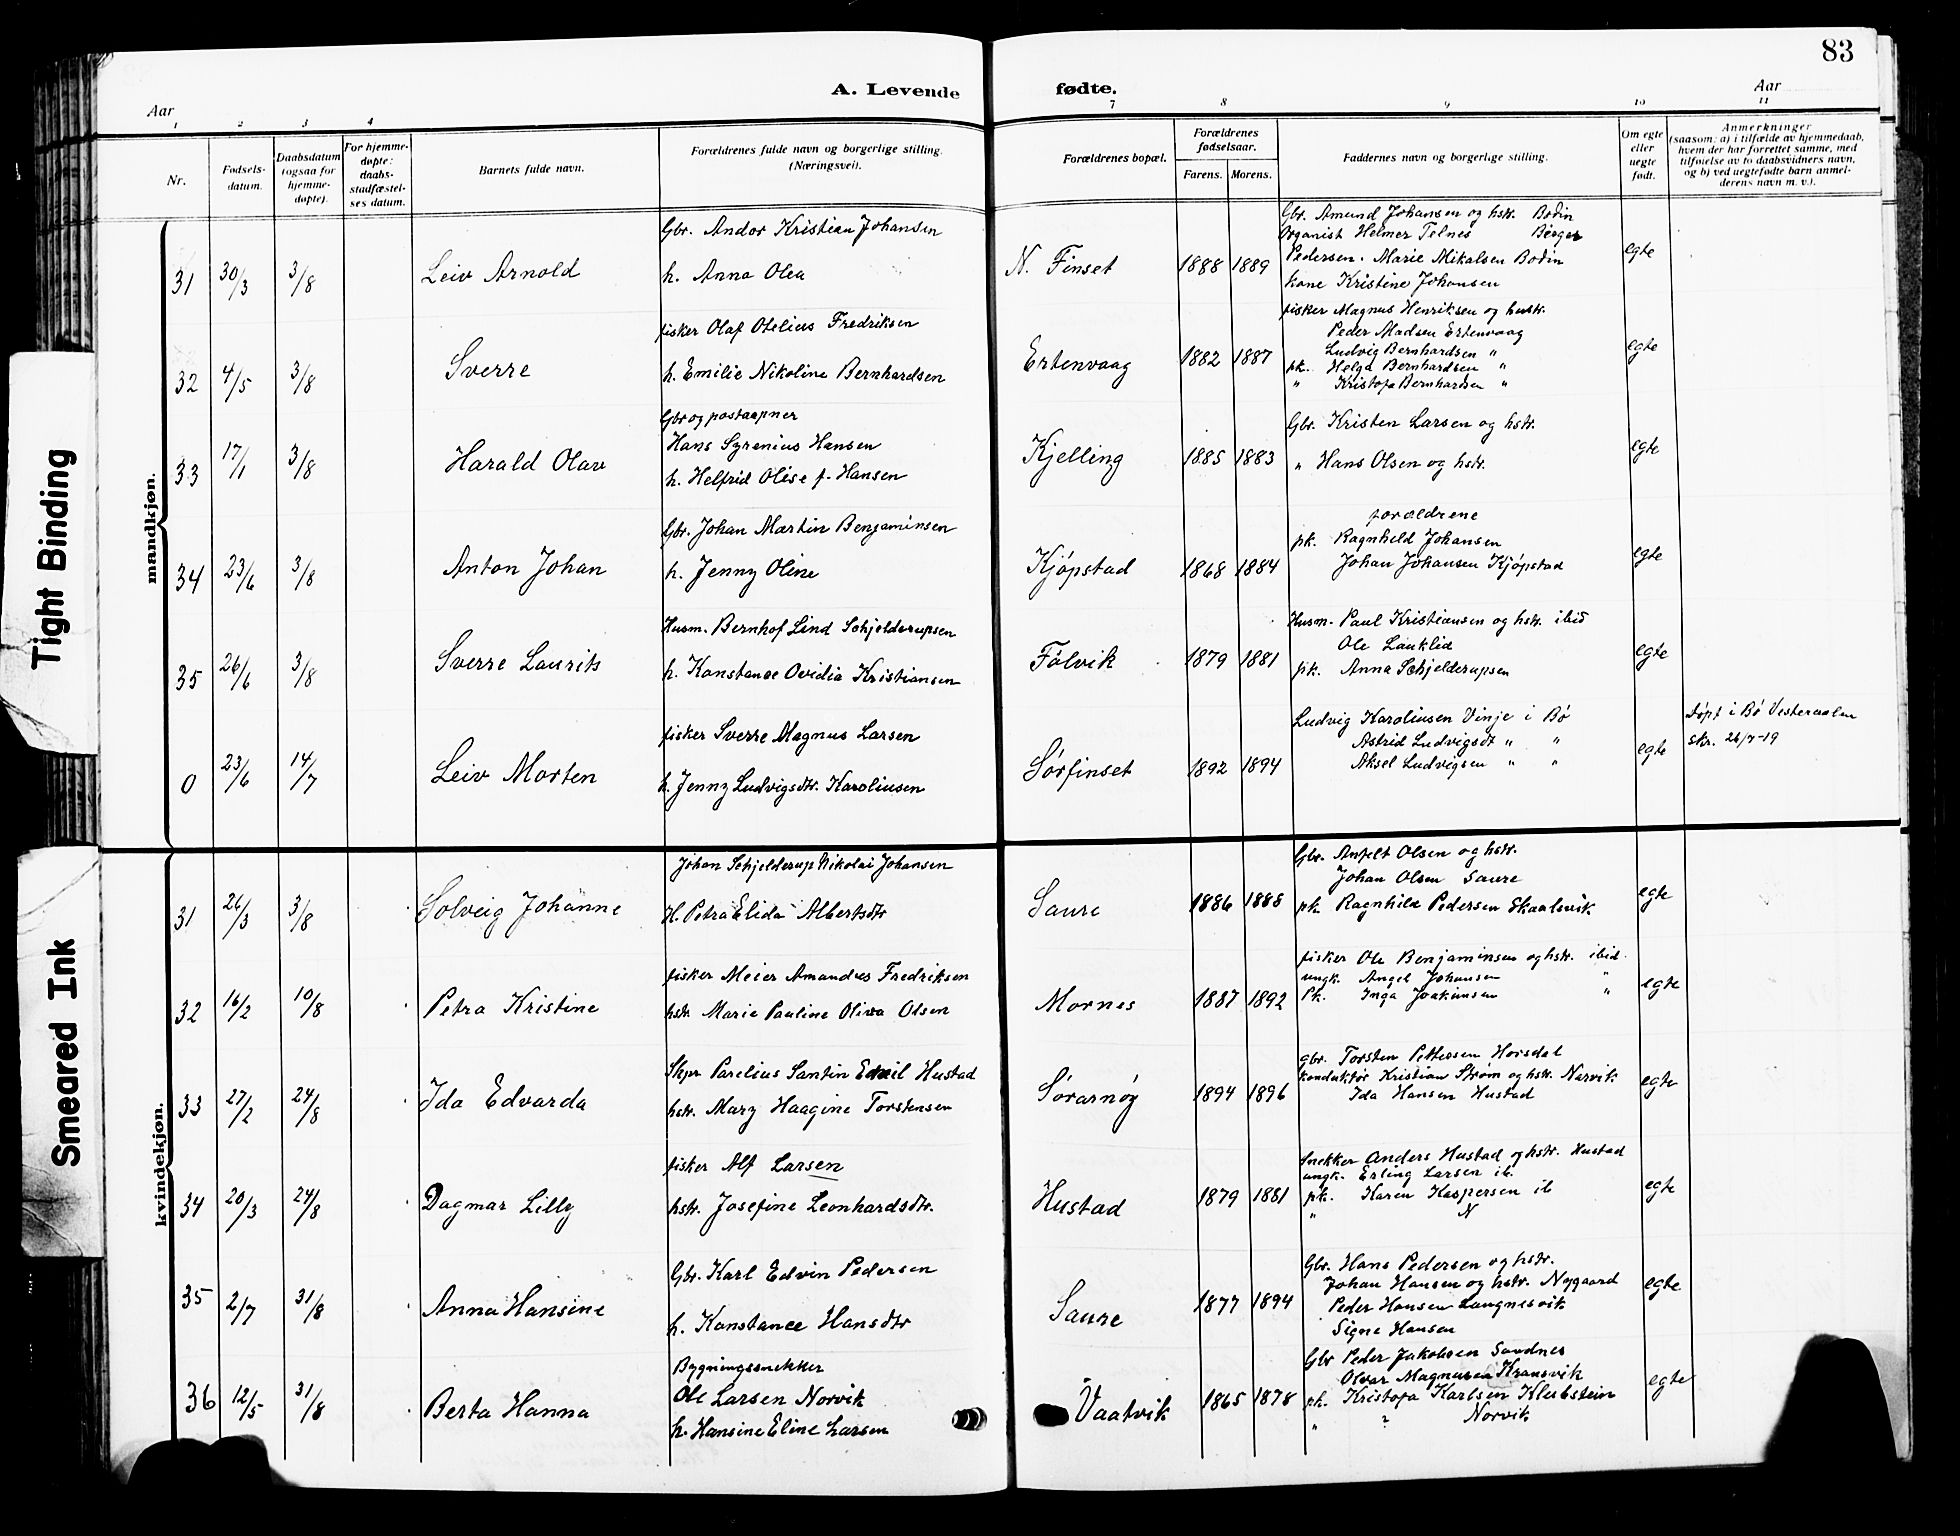 Tight Binding
Smeared Ink
83
A. Levende fødte.
Aar
Aar
1 2 3 4 7 8 9 10 11
Nr.
Fødsels-
datum.
Daabsdatum
(ogsaa for
hjemme-
døpte).
For hjemme-
døpte:
daabs-
stadfæstel-
ses datum.
Barnets fulde navn.
Forældrenes fulde navn og borgerlige stilling.
(Næringsvei).
Forældrenes bopæl.
Forældrenes
fødselsaar.
Farens. Morens.
Faddernes navn og borgerlige stilling.
Om egte
eller
uegte
født.
Anmerkninger
(saasom: a) i tilfælde av hjemmedaab,
hvem der har forrettet samme, med
tilføielse av to daabsvidners navn,
og b) ved uegtefødte barn anmel-
derens navn m. v.).
mandkjøn.
31 30/3 3/8 Leiv Arnold
Gbr. Andor Kristian Johansen
h. Anna Olea
N. Finset 1888 1889
Gbr. Amund Johansen og hstr. Bodin
Organist Helmer Telnes Berger
Pedersen. Marie Mikalsen Bodin
kone Kristine Johansen
egte
32 4/5 3/8 Sverre
fisker Olaf Otelius Fredriksen
h. Emilie Nikoline Bernhardsen
Ertenvaag 1882 1887
fisker Magnus Henriksen og hustr.
Peder Madsen Ertenvaag
Ludvig Bernhardsen "
pk. Helga Bernhardsen "
" Kristofa Bernhardsen "
egte
33 17/1 3/8 Harald Olav
Gbr og postaapner
Hans Syrenius Hansen
h. Helfrid Olise f. Hansen
Kjelling 1885 1883
Gbr. Kristen Larsen og hstr.
" Hans Olsen og hstr.
egte
34 23/6 3/8 Anton Johan
Gbr. Johan Martin Benjaminsen
h. Jenny Oline
Kjøpstad 1868 1884
forældrene
pk. Ragnhild Johansen
Johan Johansen Kjøpstad
egte
35 26/6 3/8 Sverre Laurits
Husm. Bernhof Lind Schjelderupsen
h. Konstanse Ovidia Kristiansen
Følvik 1879 1881
Husm. Paul Kristiansen og hstr. ibid
Ole Lauklid
pk. Anna Schjelderupsen
egte
0 23/6 14/7 Leiv Morten
fisker Sverre Magnus Larsen
h. Jenny Ludvigsdtr. Karoliusen
Sørfinset 1892 1894
Ludvig Karoliusen Vinje i Bø
Astrid Ludvigsdt " "
Aksel Ludvigsen " "
egte
døpt i Bø Vesteraalen
skr. 26/7-19
kvindekjøn.
31 26/3 3/8 Solveig Johanne
Johan Schjelderup Nikolai Johansen
H. Petra Elida Albertsdtr
Saure 1886 1888
Gbr. Anfelt Olsen og hstr.
Johan Olsen Saure
pk. Ragnhild Pedersen Skaalsvik
egte
32 16/2 10/8 Petra Kristine
fisker Meier Amandus Fredriksen
hstr. Marie Pauline Oliva Olsen
Mornes 1887 1892
fisker Ole Benjaminsen og hstr. ibid.
ungk. Angel Johansen "
Pk. Inga Joakimsen "
egte
33 27/2 24/8 Ida Edvarda
Skpr Parelius Santin Emil Hustad
hstr. Mary Haagine Torstensen
Sørarnøy 1894 1896
gbr. Torsten Pettersen Horsdal
konduktør Kristian Strøm og hstr. Narvik
Ida Hansen Hustad
egte
34 20/3 24/8 Dagmar Lilly
fisker Alf Larsen
hstr. Josefine Leonhardsdtr.
Hustad 1879 1881
Snekker Anders Hustad og hstr. Hustad
ungk. Erling Larsen ib.
pk. Karen Kaspersen ib
" N
egte
35 2/7 31/8 Anna Hansine
Gbr. Karl Edvin Pedersen
h. Konstance Hansdtr
Saure 1877 1894
Gbr. Hans Pedersen og hstr.
Johan Hansen og hstr. Nygaard
Peder Hansen Langnesvik
Signe Hansen
egte
36 12/5 31/8 Berta Hanna
Bygningssnekker
Ole Larsen Norvik
h. Hansine Eline Larsen
Vaatvik 1865 1878
Gbr Peder Jakobsen Sandnes
Olvar Magnussen Kransvik
pk. Kristofa Karlsen Klubstein
" " Norvik
egte